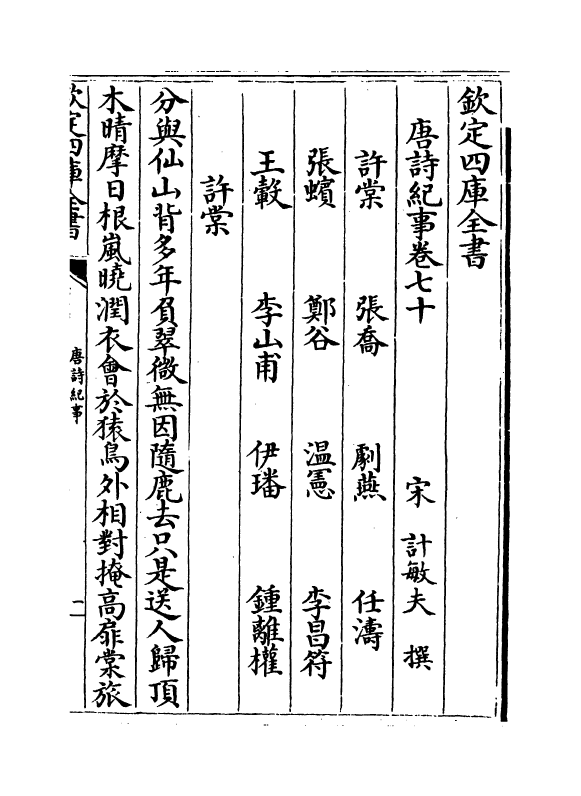 欽定四庫全書
唐詩紀事卷七十 宋 計敏夫 撰
許棠 張喬 劇燕 任濤
張蠙 鄭谷 温憲 李昌符
王轂 李山甫 伊璠 鍾離權
許棠
分與仙山背多年負翠微無因隨鹿去只是送人歸頂
木晴摩日根嵐曉潤衣會於猿鳥外相對掩高扉棠旅
欽定四庫全書
唐詩紀事
一